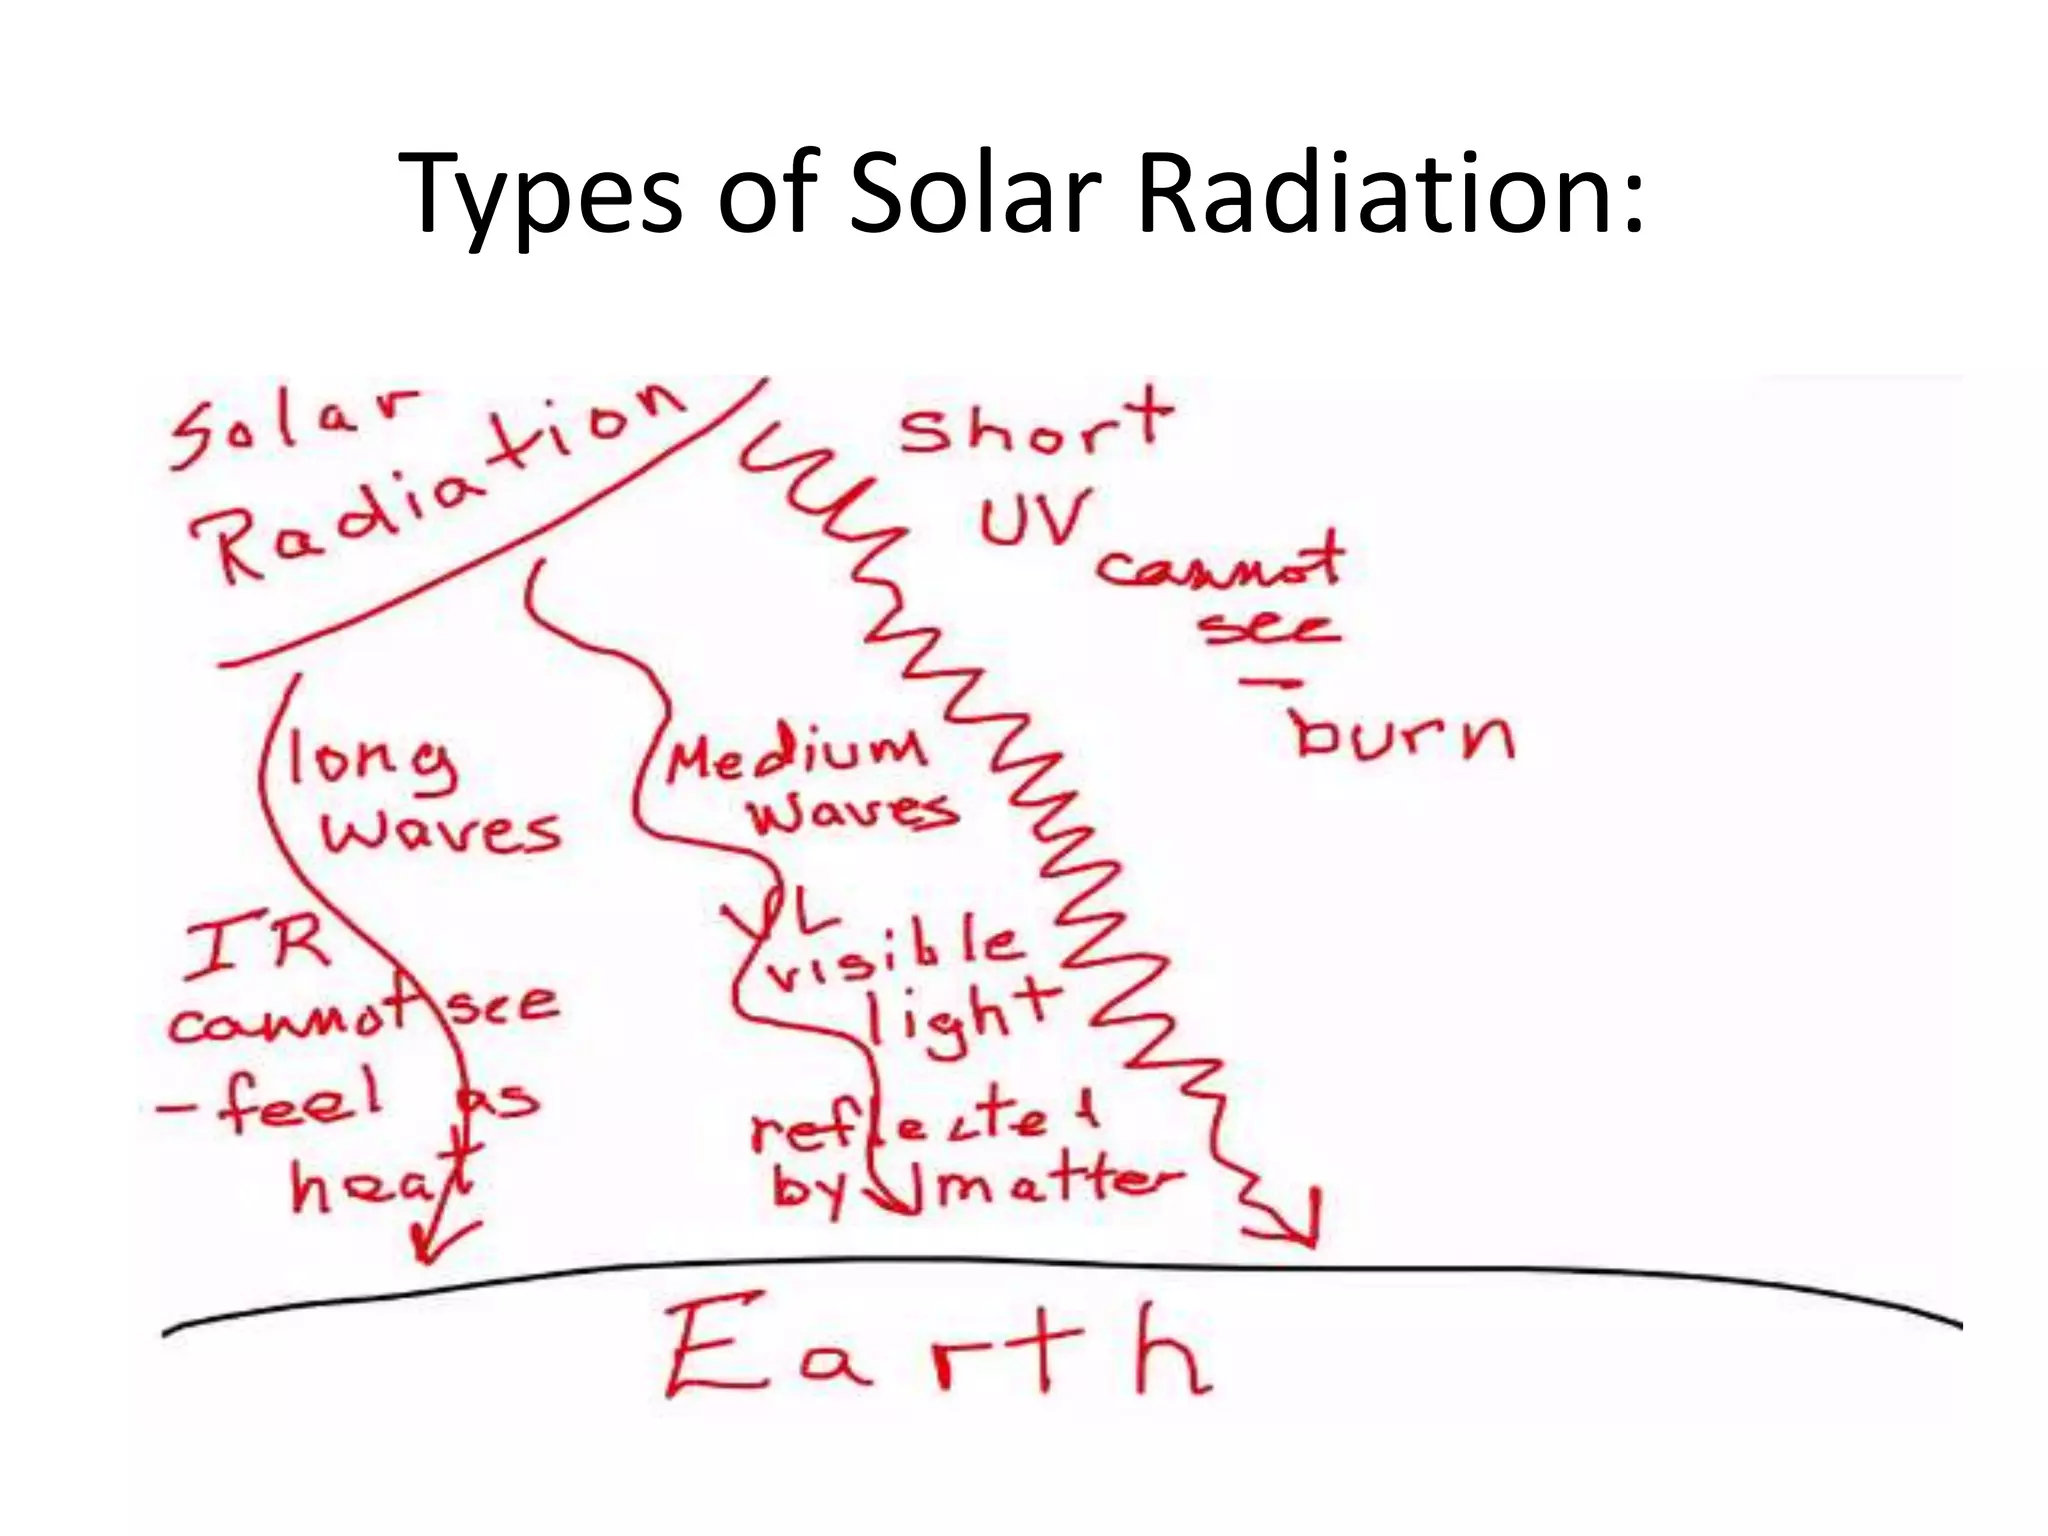 Types of Solar Radiation:
Solar
Radiation
Short
UV
cannot
see
- burn
long
waves
IR
cannot see
- feel as
heat
Medium
waves
VL
visible
light
reflected
by matter
Earth